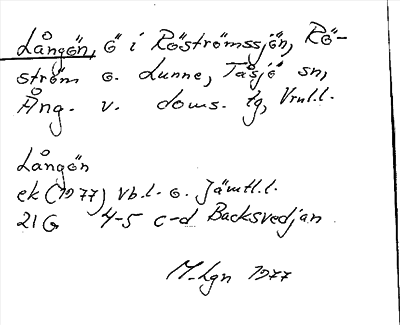 Långön, ö i Röströmssjön, Rö-
ström o. Lunne, Tåsjö sn,
Ång. v. doms. lg, Vrnl.l.
Långön
ek (1977) Vb.l. o. Jämtl.l.
21G 4-5 c-d Backsvedjan
M-lgn 1977